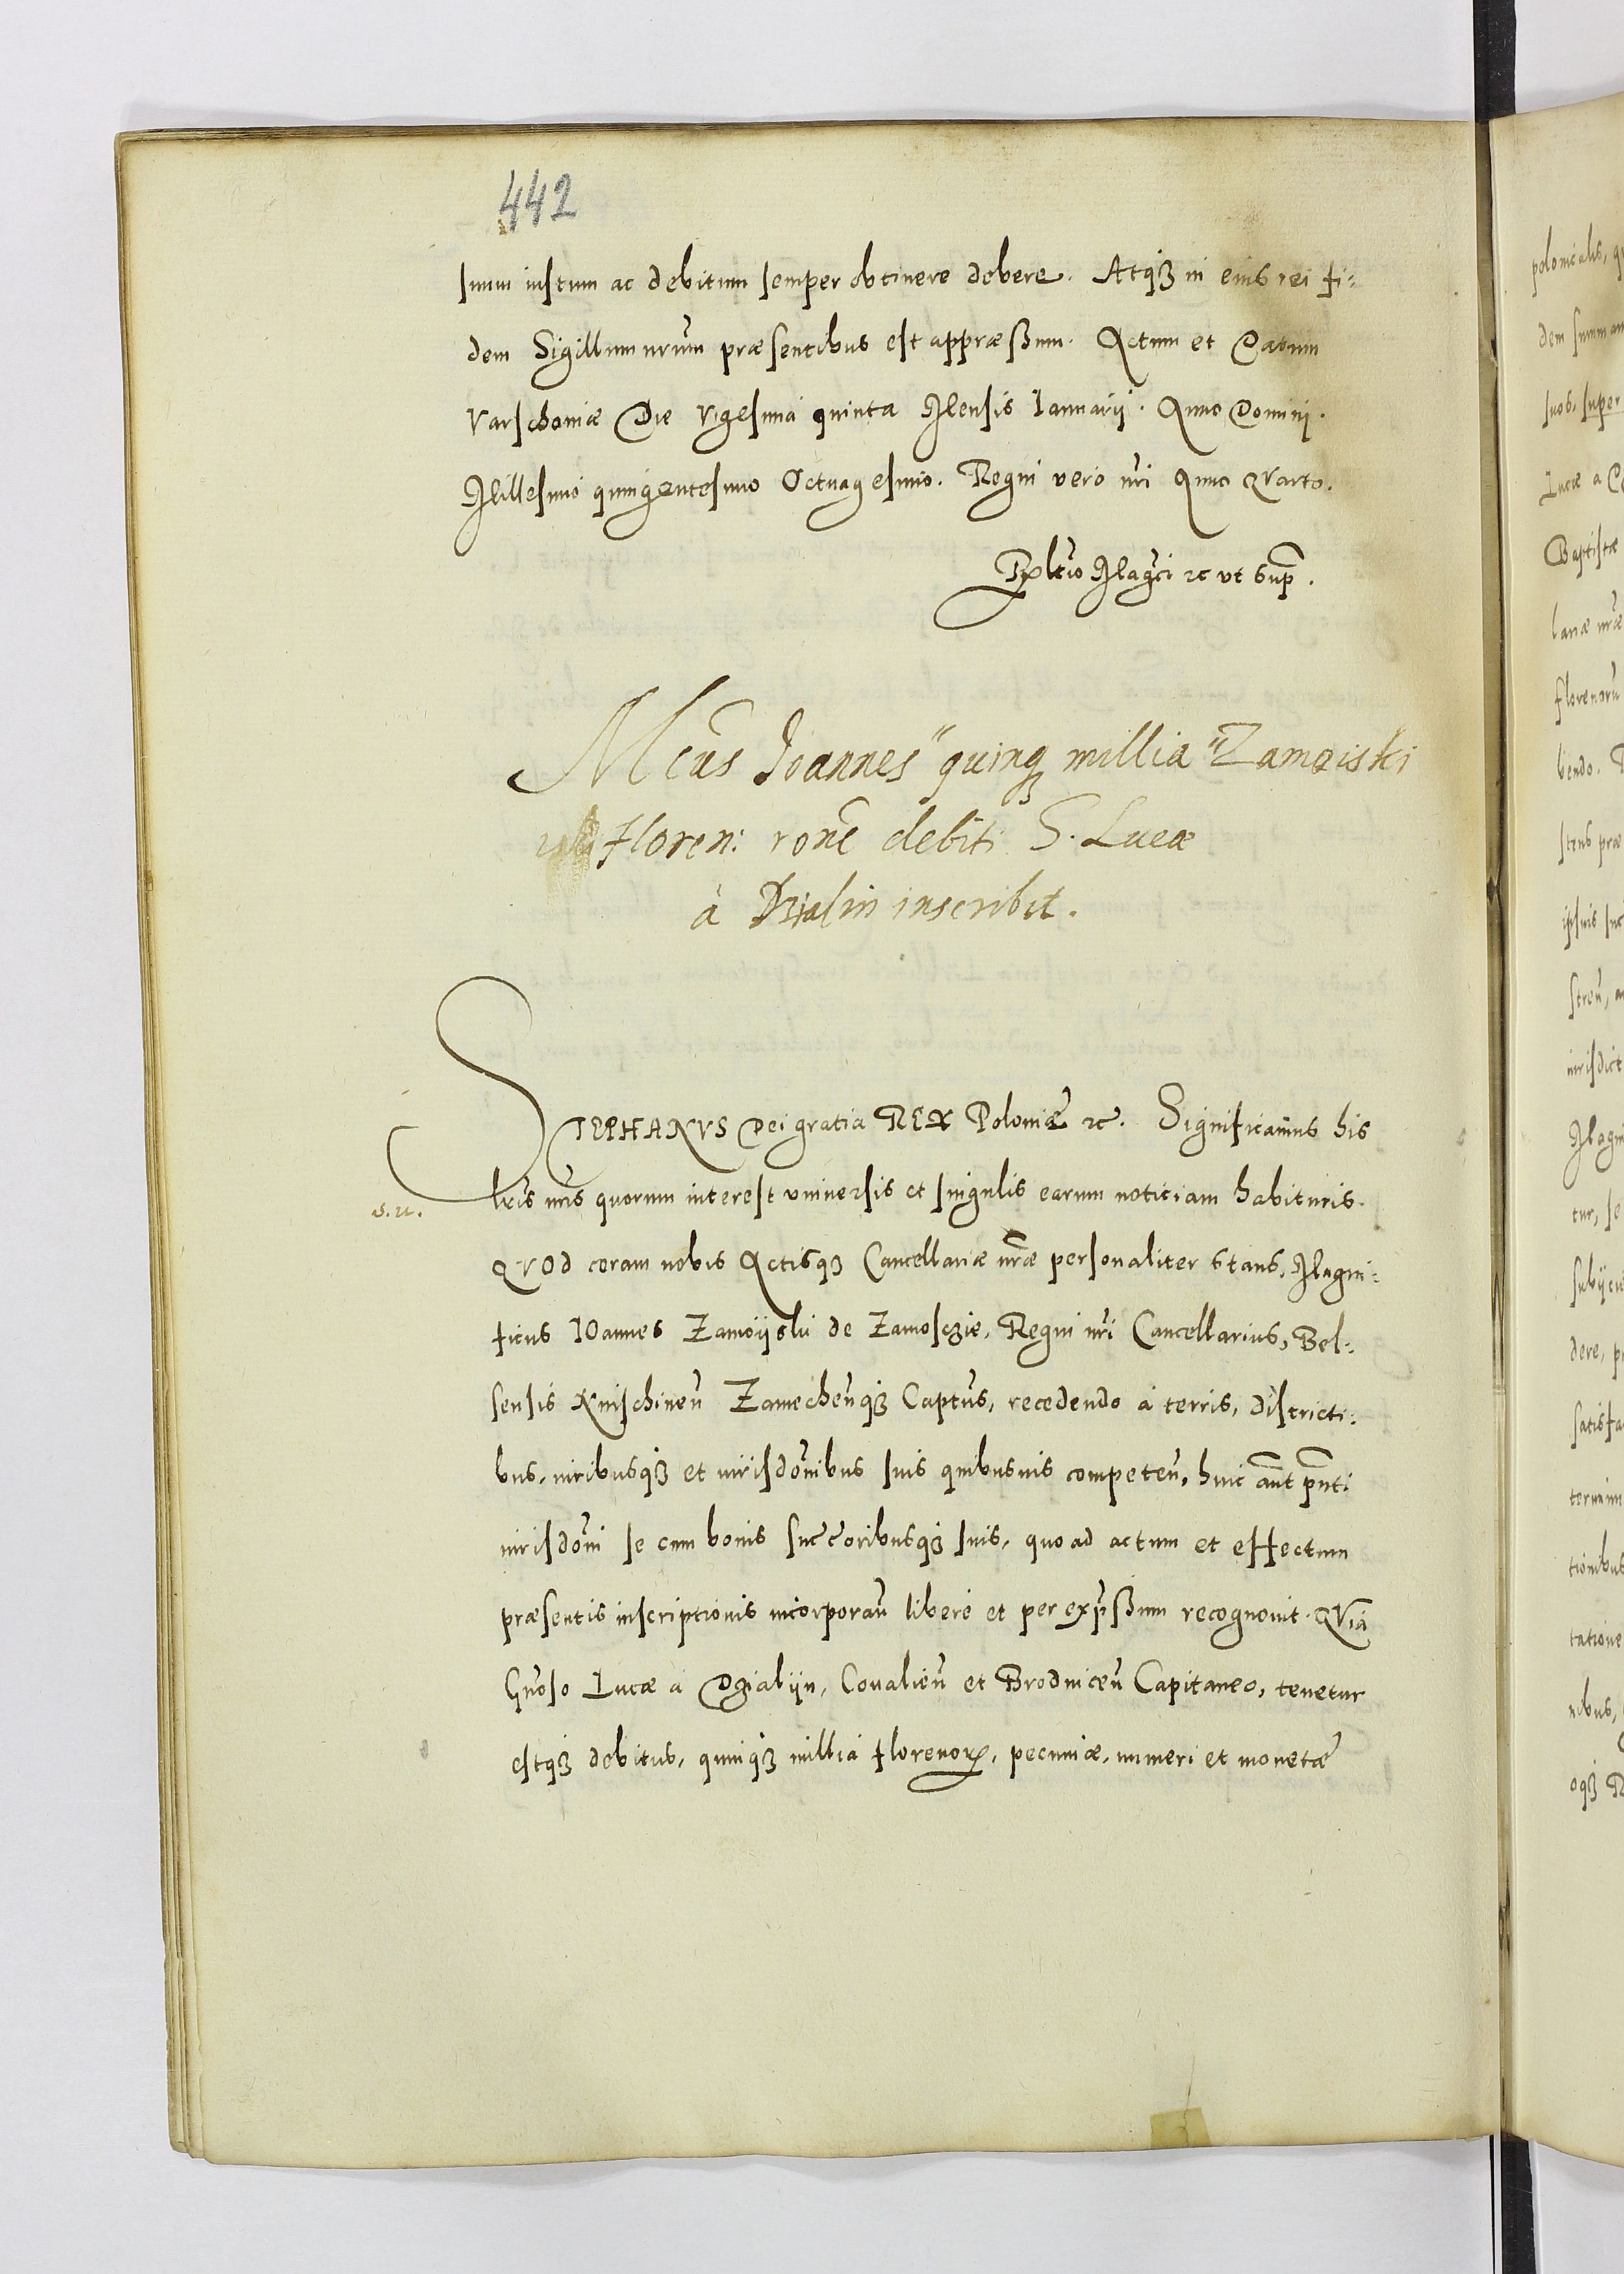 442
suum iustum ac debitum semper obtinere debere. Atqꝫ in eius rei fi-
dem Sigillum nrum præsentibus est appræssum. Actum et Datum
Varschoviæ Die Vigesima quinta Mensis Ianuarij. Anno Domini.
Millesimo quingentesimo Octuagesimo. Regni vero nri Anno Quarto.
Rltio Magci ec vt Sup.
Mcus Joannes "quinqꝫ millia" Zamoiski
Floren: rone debiti G. Lucæ
à Dzialin inscribit.
STEPHANVS Dei gratia REX Poloniæ ec. Significamus his
s. n. lris nris quorum interest vniuersis et singulis earum notitiam habituris.
QVOd coram nobis Actisqꝫ Cancellariæ nræ personaliter stans, Magni-
ficus IOannes Zamoijski de Zamosczie, Regni nri Cancellarius, Bel-
sensis Knischinen Zamechenqꝫ Captus, recedendo à terris, districti-
bus, iuribusqꝫ et iurisdonibus suis quibusuis competen, huic aut pnti
iurisdoni se cum bonis succoribusqꝫ suis, quo ad actum et effectum
præsentis inscriptionis incorporan libere et per expssum recognouit. QVia
Gnoso Lucæ à Dzialijn, Coualien et Brodnicen Capitaneo, tenetur
estqꝫ debitus, quinqꝫ millia florenoꝝ, pecuniæ, numeri et monetæ
polonicalis,
dem summam
suos, super
Lucæ a
Baptistæ
lariæ nræ
florenoru
bendo.
ipsius
iurisdict
tur, se
dere,
satisfa
termin
tionibus
tatione
nibus,